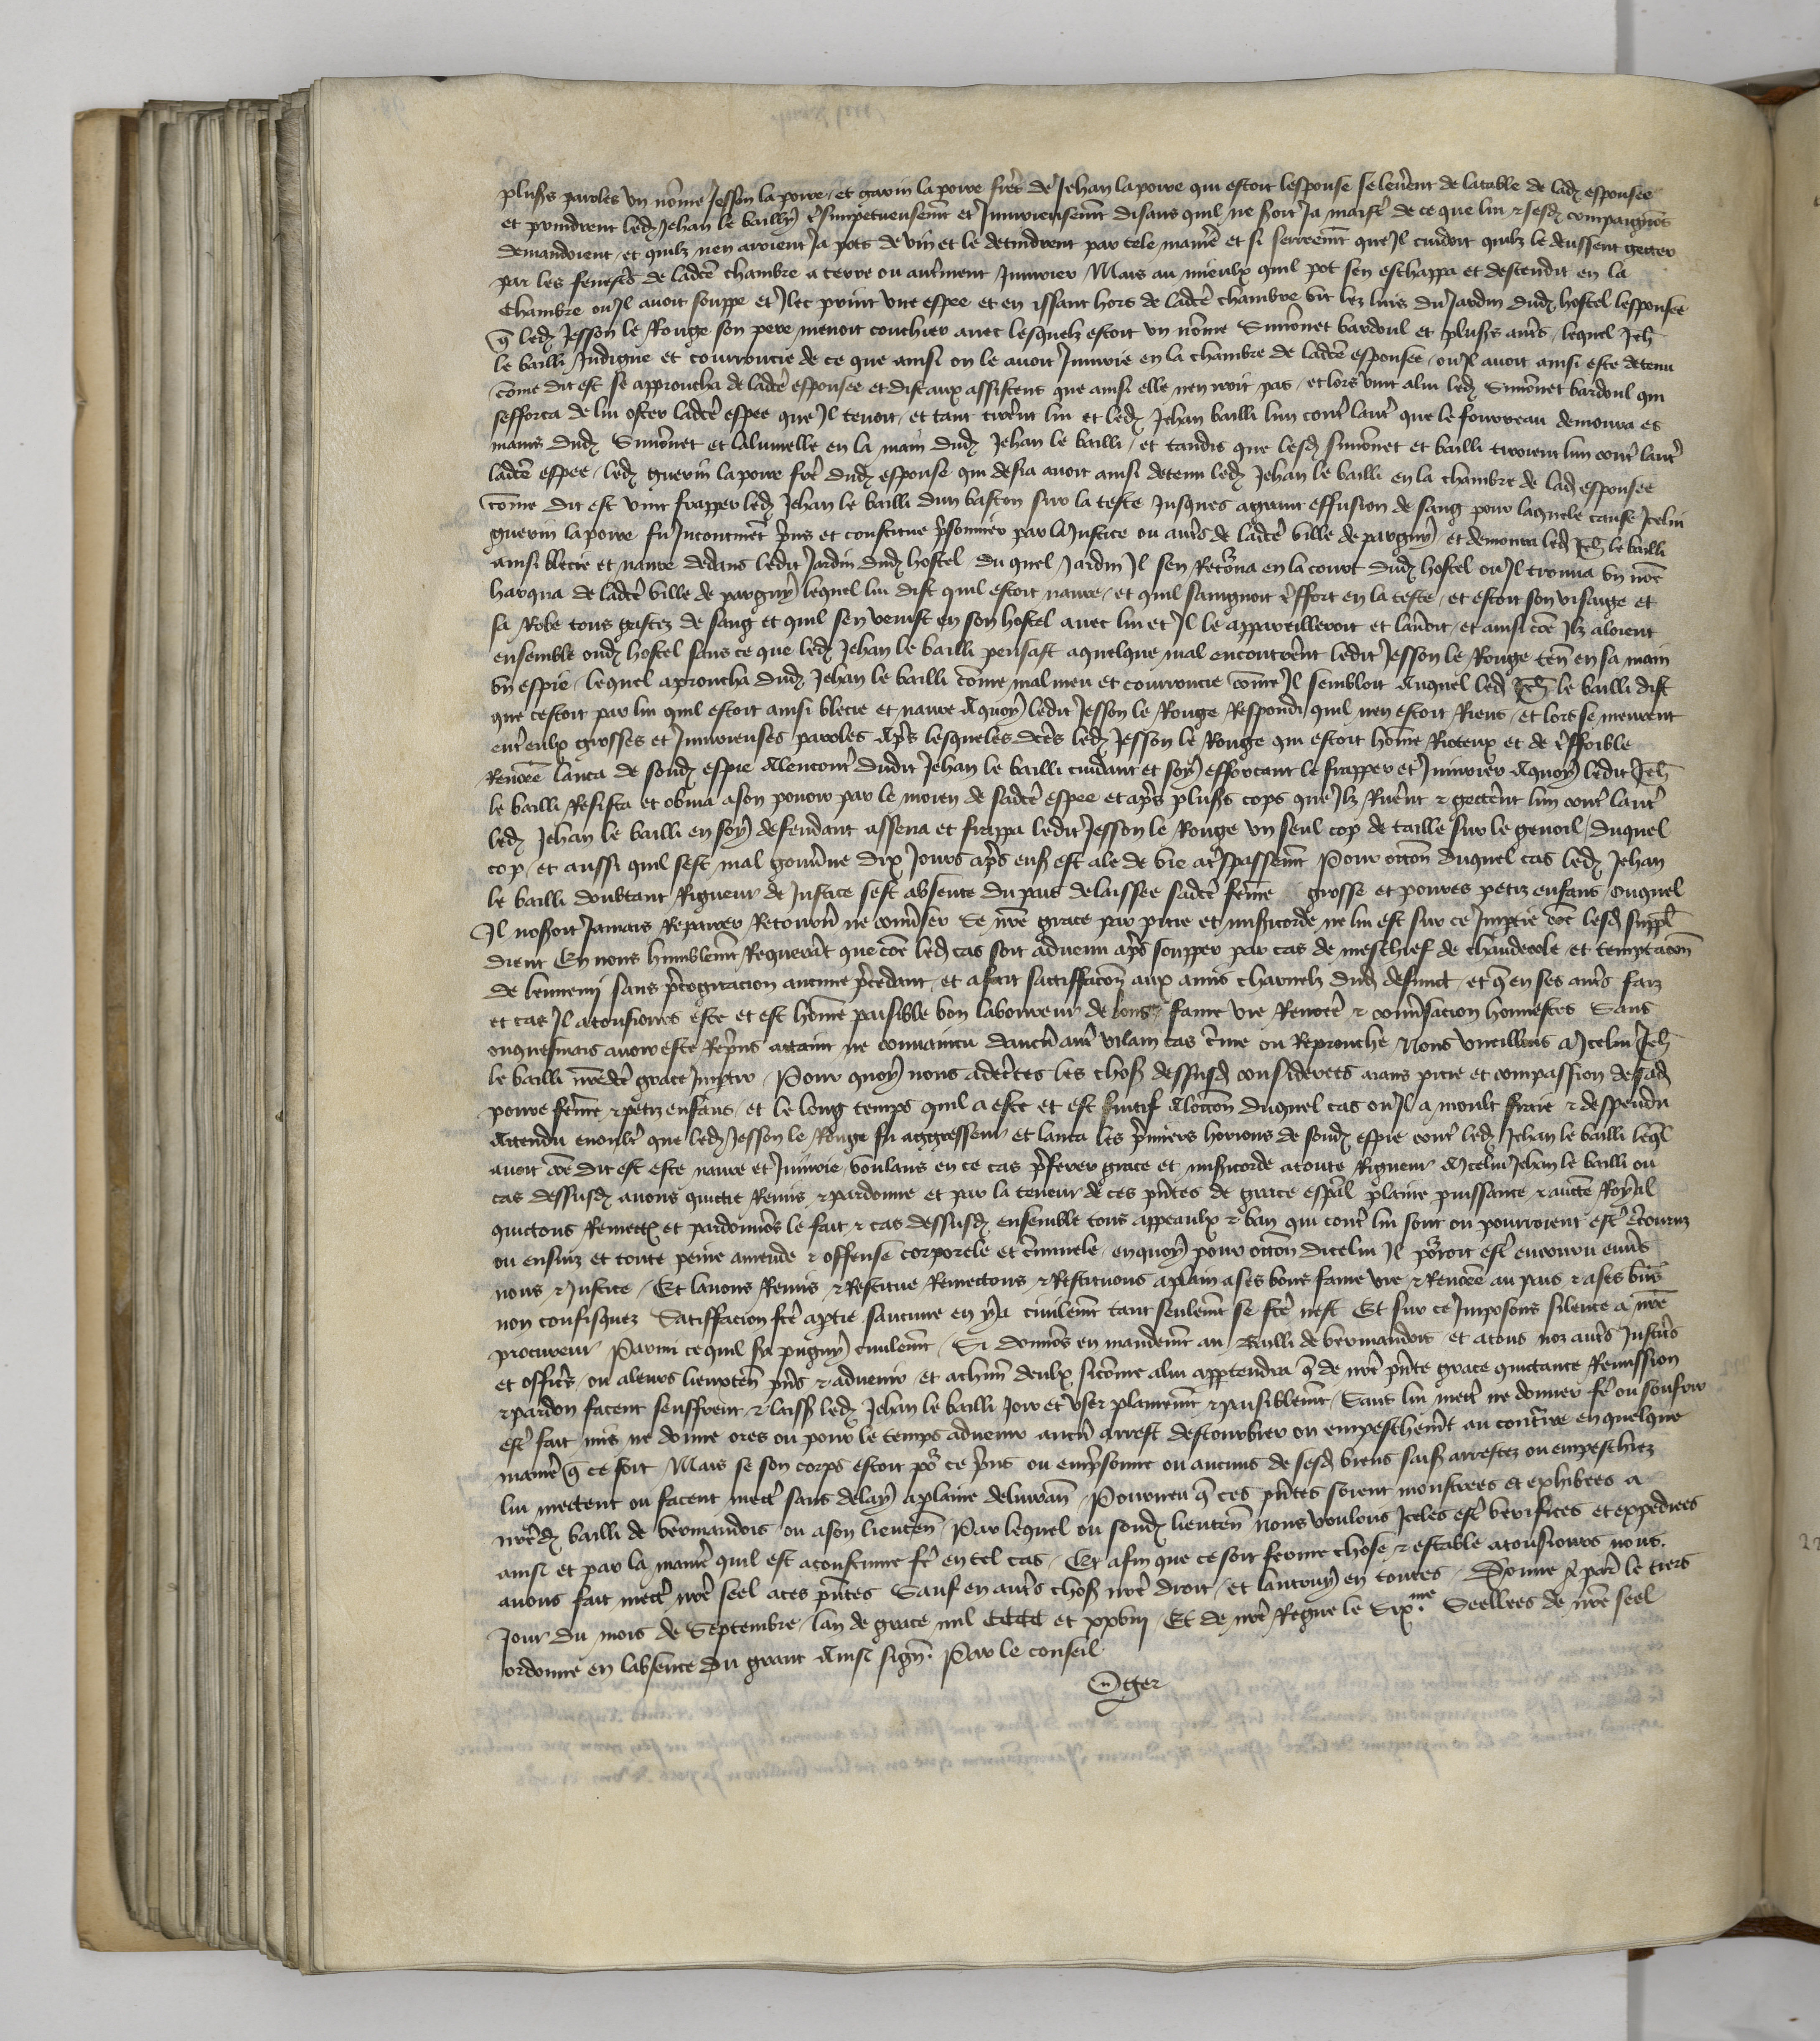 plus͛s paroles un no͛me Jesson lapoure et gavin lapoure fre͛s de Jehan lapoure qui estoit lespouse se leve͛ent de la table de lad͛ espousee
et prindrent led͛ Jehan le bailly t͛simpetueusem͛t et Jniurieusem͛t disans quil ne seroit Ja maist͛ de ce que lui & sesd͛ compaigno͛s
demandoient et quilz nen auroient Ja pots de vin et le detindrent par tele manie͛ et si serreem͛t que Jl cuidoit quilz le deussent getter
par les fenest͛s de ladce͛ chambre a terre ou autrement Jniurier Mais au mieulx quil pot sen eschappa et descendit en la
chambre ou Jl avoit souppe et Jlec print une espee et en issant hors de ladce͛ chambre vit lez luis du Jardin dud͛ hostel lespousee
q͛ led͛ Jesson le Rouge son pere menoit couchier avec lesquelz estoit un no͛me Simo͛net bardoul et plus͛s aut͛s lequel Jeh͛
le bailli Jndigne et courroucie de ce que ainsi on le avoit Jniurie en la chambre de ladce͛ espousee ou Jl avoit ainsi este detenu
co͛me dit est se approucha de ladce͛ espousee et dist aux assistens que ainsi elle nen iroit pas et lors vint a lui led͛ Simo͛net bardoul qui
sefforca de lui oster ladce͛ espee que Jl tenoit et tant tire͛ent lui et led͛ Jehan bailli lun cont͛ laut͛ que le fourreau demoura es
mains dud͛ Simo͛net et lalumelle en la main dud͛ Jehan le bailli et tandis que lesd͛ simo͛net et bailli tiroient lun cont͛ laut͛
ladce͛ espee led͛ guerin lapoure fre͛ dud͛ espouse qui desia avoit ainsi detenu led͛ Jehan le bailli en la chambre de lad͛ espousee
co͛me dit est vint frapper led͛ Jehan le bailli dun baston sur la teste Jusques a grant effusion de sang pour laquele cause Jcelui
guerin lapoure fu Jncontine͛t p͛ns et constitue p͛sonnier par la Justice ou aut͛s de ladce͛ ville de pargny et demoura led͛ Jeh͛ le bailli
ainsi blecie et navre dedans ledit Jardin dud͛ hostel du quel Jardin Jl sen Reto͛rna en la court dud͛ hostel ou Jl trouva un no͛e
harqua de ladce͛ ville de pargny lequel lui dist quil estoit navre et quil saingnoit t͛sfort en la teste et estoit son visaige et
sa Robe tous gastez de sang et quil sen venist en son hostel avec lui et Jl le appareilleroit et laveroit et ainsi co͛e Jlz aloient
ensemble oud͛ hostel sans ce que led͛ Jehan le bailli pensast a quelque mal encontre͛ent ledit Jesson le Rouge ten͛ en sa main
un espie lequel aproucha dud͛ Jehan le bailli co͛me mal meu et courroucie co͛me Jl sembloit Auquel led͛ Jeh͛ le bailli dist
que cestoit par lui quil estoit ainsi blecie et navre A quoy ledit Jesson le Rouge Respondi quil nen estoit Riens et lors se meurent
ent͛ eulx grosses et Jniurieuses paroles Ap͛s lesqueles dce͛s led͛ Jesson le Rouge qui estoit ho͛me Rioteux et de t͛sfoible
Reno͛mee lanca de soud͛ espie Alencont͛ dudit Jehan le bailli cuidant et soy efforcant le frapper et Jniurier A quoy ledit Jeh͛
le bailli Resista et obvia a son povoir par le moien de sadce͛ espee et ap͛s plus͛s cops que Jlz Rue͛ent & gette͛ent lun cont͛ laut͛
led͛ Jehan le bailli en soy defendant assena et frappa ledit Jesson le Rouge un seul cop de taille sur le genoil duquel
cop et aussi quil sest mal gouv͛ne dix Jours ap͛s ens͛ est ale de vie a t͛spassem͛t Pour occo͛n duquel cas led͛ Jehan
le bailli doubtant Rigueur de Justice sest absente du pais delaissee sadce͛ fe͛me grosse et poures petiz enfans ouquel
Jl noseroit Jamais Reparer Retourn͛ ne conv͛ser Se n͛re grace par pitie et mis͛icorde ne lui est sur ce Jmp͛tie co͛e lesd͛ suppl͛
dient En nous humblem͛t Requera͛t que co͛e led͛ cas soit advenu ap͛s soupper par cas de meschief de chaudecole et temptac͛on
de lennemi sans p͛cogitacion aucune p͛cedant et a fait sattiffac͛on aux amis charnelz dud͛ defunct et q͛ en ses aut͛s faiz
et cas Jl a tousiours este et est ho͛me paisible bon laboureur de bons fame vie Reno͛mee & conv͛sacion honnestes Sans
onquesmais avoir este Rep͛ns attaint ne convaincu dauc͛ aut͛ vilain cas c͛me ou Reprouche Nous vueillons a Jcelui Jeh͛
le bailli n͛redce͛ grace Jmp͛tir Pour quoy nous adce͛rtes les chos͛ dessusd͛ considerees aians pitie et compassion de sad͛
poure fe͛me & petiz enfans et le long temps quil a este et est fuitif A locco͛n duquel cas ou Jl a moult fraie & despendu
Attendu enoult͛ que led͛ Jesson le Rouge fu aggresseur et lanca les p͛miers horions de soud͛ espie cont͛ led͛ Jehan le bailli leq͛l
avoit co͛e dit est este navre et Jniurie voulans en ce cas p͛ferer grace et mis͛icorde a toute Rigueur A Jcelui Jehan le bailli ou
cas dessusd͛ avons quictie Remis & pardonne et par la teneur de ces p͛ntes de grace esp͛al plaine puissance & aucte͛ Royal
quictons Remett͛ et pardonno͛s le fait & cas dessusd͛ ensemble tous appeaulx & ban qui cont͛ lui sont ou pourroient est͛ encouruz
ou ensuiz et toute peine amende & offense corporele et c͛minele en quoy pour occo͛n dicelui Jl po͛roit est͛ encouru env͛s
nous & Justice Et lavons Remis & Restitue Remettons & Restituons a plain a ses bone fame vie & Reno͛mee au pais & a ses bie͛s
non confisquez Satiffacion fce͛ a p͛tie saucune en y a civilem͛t tant seulem͛t se fce͛ nest Et sur ce Jmposons silence a n͛re
procureur Parmi ce quil sa p͛ugny civilem͛t Si donno͛s en mandem͛t au Bailli de vermandois et a tous noz aut͛s Justic͛s
et offic͛s ou a leurs lieuxten͛ p͛ns & advenir et a ch͛un deulx sico͛me a lui app͛tendra q͛ de n͛re p͛nte grace quictance Remission
& pardon facent seuffrent & laiss͛ led͛ Jehan le bailli Joir et user plainem͛t & paisiblem͛t Sans lui mett͛ ne donner fe͛ ou soufrir
est͛ fait mis ne donne ores ou pour le temps advenir auc͛ arrest destourbier ou empeschem͛t au contrai͛e en quelque
manie͛ q͛ ce soit Mais se son corps estoit po͛ ce p͛ns ou emp͛sonne ou aucuns de sesd͛ biens sais͛ arrestez ou empeschiez
lui mettent ou facent mett͛ sans delay a plaine delivran͛ Pourveu q͛ ces p͛ntes soient monstrees et exhibees a
n͛red͛ bailli de vermandois ou a son lieuten͛ Par lequel ou soud͛ lieuten͛ nous voulons Jceles est͛ verifiees et expediees
ainsi et par la manie͛ quil est acoustume fe͛ en tel cas Et afin que ce soit ferme chose & estable a tousiours nous
avons fait mett͛ n͛re seel a ces p͛ntes Sauf en aut͛s chos͛ n͛re droit et lautruy en toutes Donne a par͛ le tiers
Jour du mois de Septembre lan de grace mil CCCC et xxviij Et de n͛re Regne le Sixme Seellees de n͛re seel
ordonne en labsence du grant Ainsi sign͛ Par le conseil
Oger